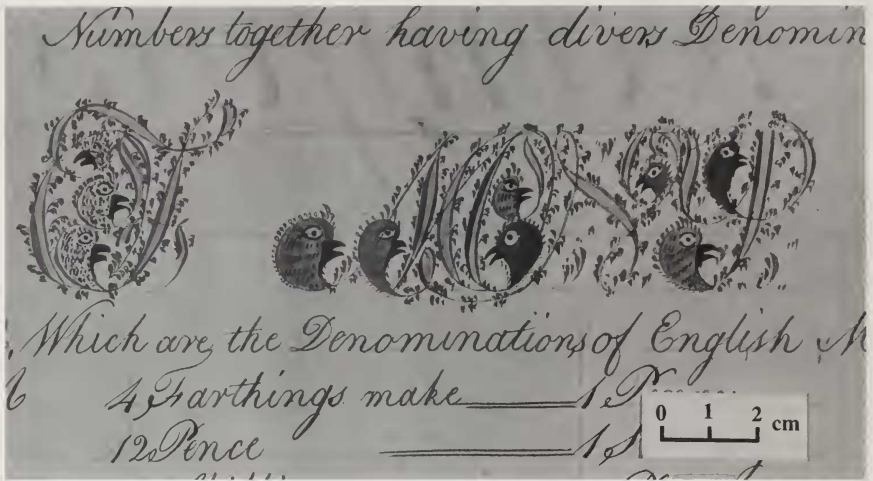 Numbers together having divers Denomin
Which are the Denominations of English M
4 Farthings make 1 P
12 Pence 1 S
0 1 2 cm